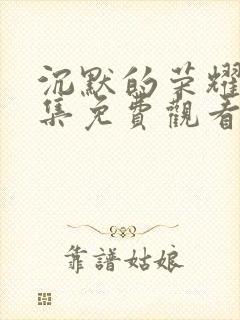 沉默的荣耀
集免費觀看
靠譜姑娘